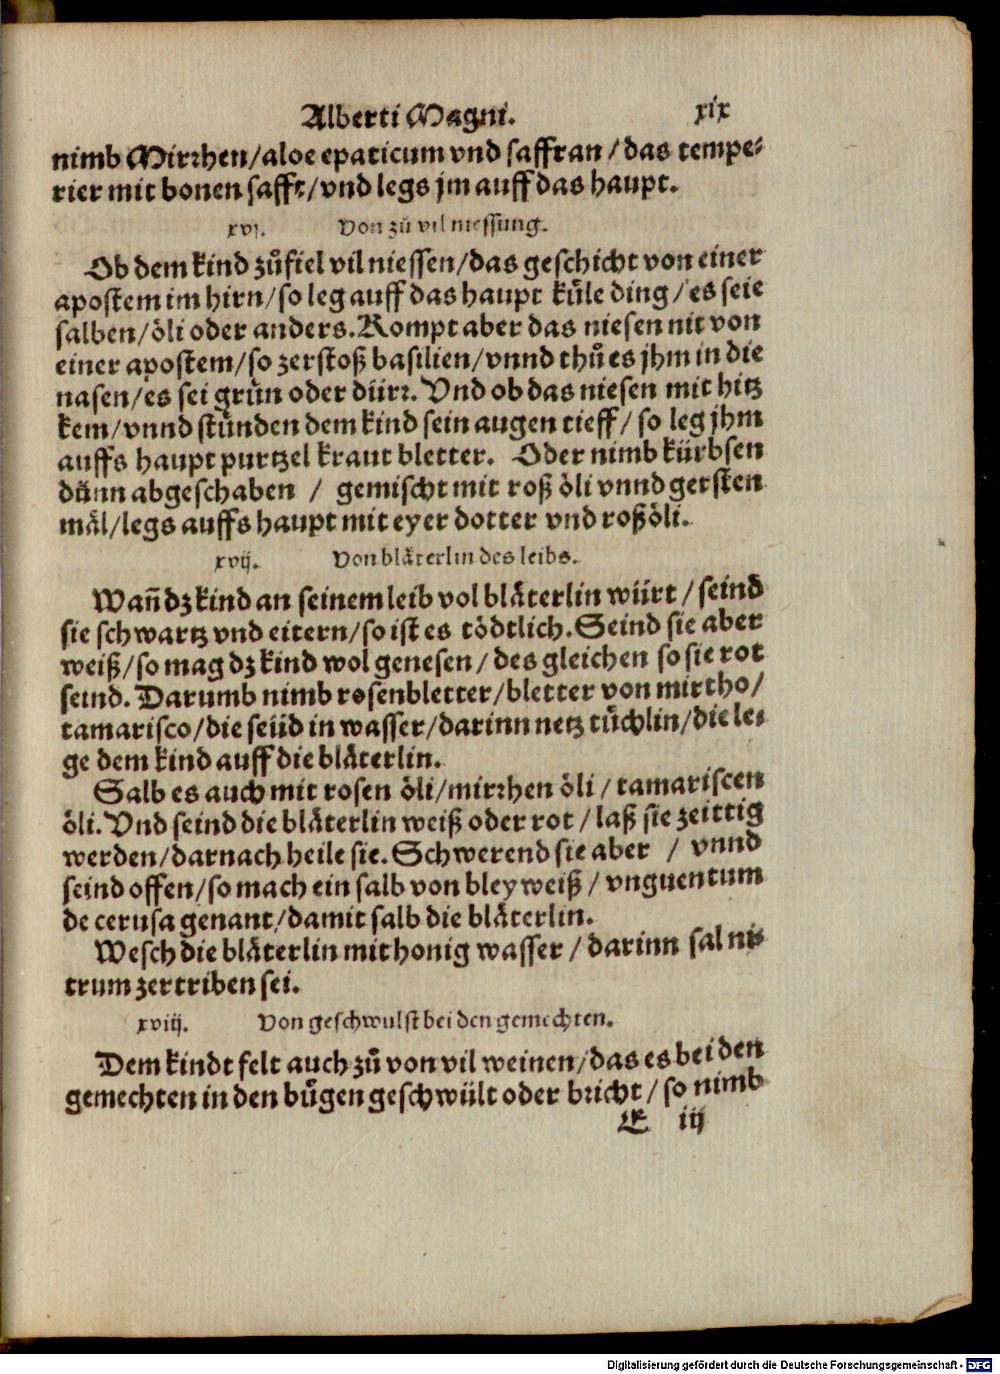 Alberti Magni. xix
nimb Mirrhen/aloe epaticum vnd saffran/das tempe-
rier mit bonen safft/vnd legs jm auff das haupt.
xvj. Von zů vil niessung.
Ob dem kind zůfiel vil niessen/das geschicht von einer
apostem im hirn/so leg auff das haupt kůle ding/es seie
salben/öli oder anders. Kompt aber das niesen nit von
einer apostem/so zerstoß basilien/vnnd thů es jhm in die
nasen/es sei grün oder dürr. Vnd ob das niesen mit hitz
kem/vnnd stünden dem kind sein augen tieff/so leg jhm
auffs haupt purtzel kraut bletter. Oder nimb kürbsen
dünn abgeschaben / gemischt mit roß öli vnnd gersten
mäl/legs auffs haupt mit eyer dotter vnd roßöli.
xvij. Von bläterlin des leibs.
Wañ dz kind an seinem leib vol bläterlin würt/seind
sie schwartz vnd eitern/so ist es tödtlich. Seind sie aber
weiß/so mag dz kind wol genesen/des gleichen so sie rot
seind. Darumb nimb rosenbletter/bletter von mirtho/
tamarisco/die seüd in wasser/darinn netz tüchlin/die le-
ge dem kind auff die bläterlin.
Salb es auch mit rosen öli/mirrhen öli/tamariscen
öli. Vnd seind die bläterlin weiß oder rot/laß sie zeittig
werden/darnach heile sie. Schwerend sie aber / vnnd
seind offen/so mach ein salb von bleyweiß/vnguentum
de cerusa genant/damit salb die bläterlin.
Wesch die bläterlin mit honig wasser/darinn sal ni-
trum zertriben sei.
xviij. Von geschwulst bei den gemechten.
Dem kindt felt auch zů von vil weinen/das es bei den
gemechten in den bügen geschwült oder bricht/so nimb
E iij
Digitalisierung gefördert durch die Deutsche Forschungsgemeinschaft - DFG